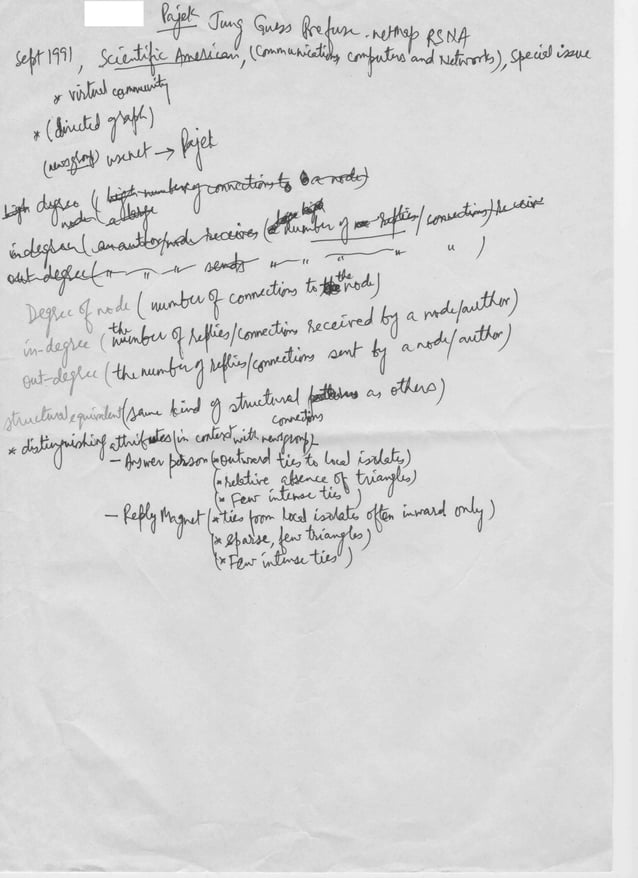 Pajek Jung Guess Prefuse - netmap RSNA
Sept 1991, Scientific American, (Communications, computers and Networks), special issue
* virtual community
* (directed graph)
(newsgroup) usenet → Pajek
high degree (high number of connections to a node)
node a large
indegree (an author/node receives number of replies/connections) receive
out-degree ( " " " sends " " " " " )
Degree of node (number of connections to the node)
in-degree (the number of replies/connections received by a node/author)
out-degree (the number of replies/connections sent by a node/author)
structural equivalent (same kind of structural patterns as others)
connections
* distinguishing attributes/in context with newsgroup
- Answer person (* outward ties to local isolates)
(* relative absence of triangles)
(* Few intense ties)
- Reply Magnet (* ties from local isolates often inward only)
(* sparse, few triangles)
(* Few intense ties)